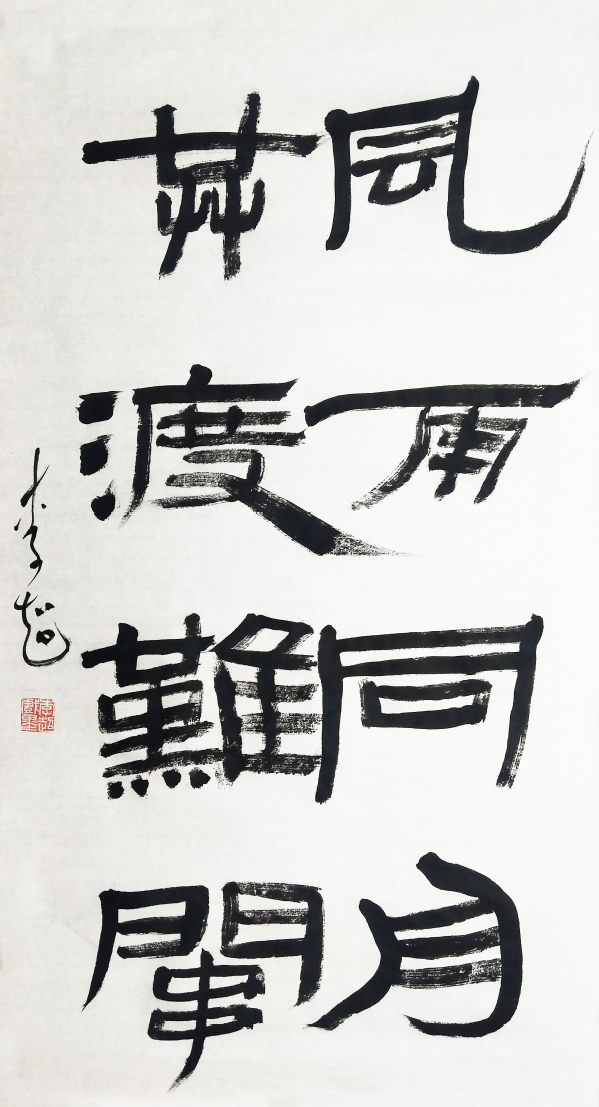 風雨同舟
共渡難關
李超